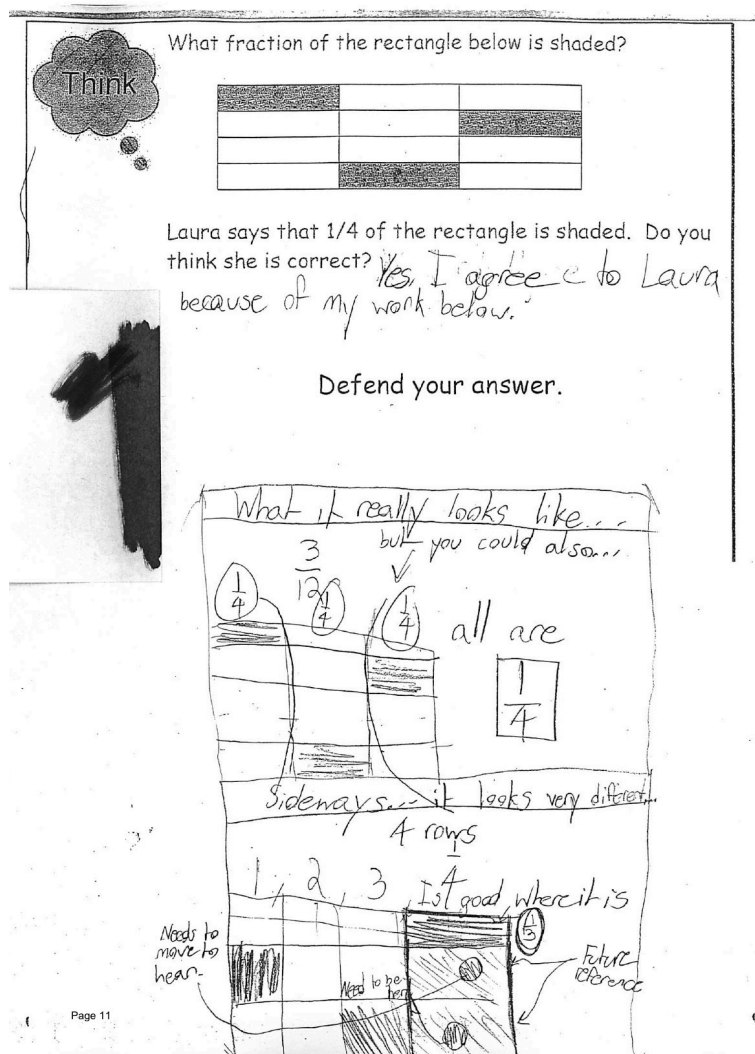 What fraction of the rectangle below is shaded?
Think
Laura says that 1/4 of the rectangle is shaded. Do you
think she is correct? Yes, I agree to Laura
because of my work below.
Defend your answer.
What it really looks like....
but you could also....
3/12
1/4 1/4 1/4 all are
1/4
Sideways... it looks very diferent...
4 rows
1/4
1, 2, 3, 4
Is good where it is
1/3
Needs to
move to
hear.
Need to be
her
Future
reference
Page 11